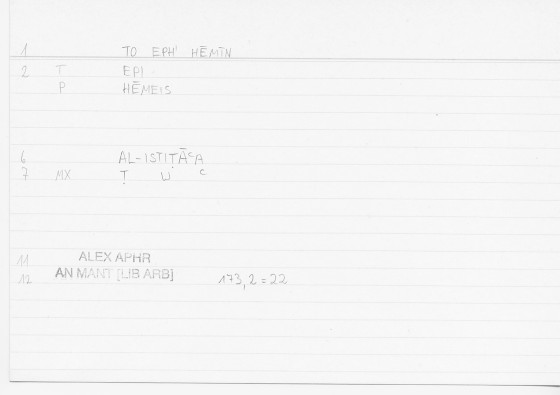 1 TO EPH' HĒMĪN
2 T EPI
P HĒMEIS
6 AL-ISTIṬĀᶜA
7 MX Ṭ W ᶜ
11 ALEX APHR
12 AN MANT [LIB ARB] 173,2=22